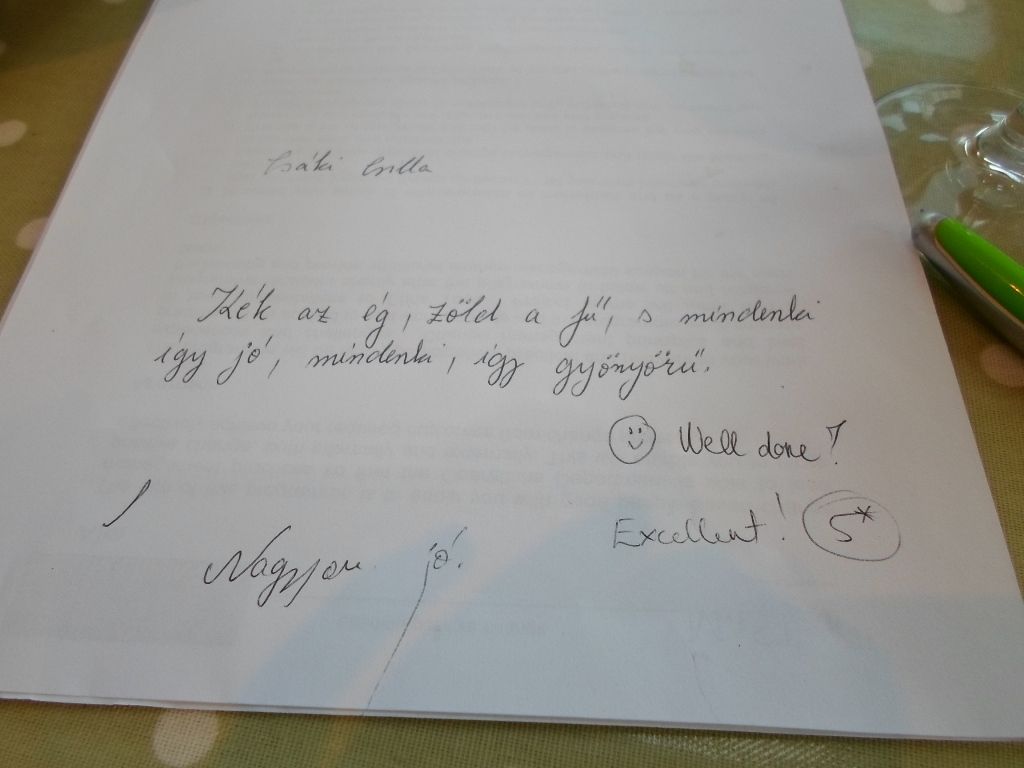 Csáki Csilla
Kék az ég, zöld a fű, s mindenki
így jó, mindenki, így gyönyörű.
Well done!
Excellent! 5*
Nagyon jó!